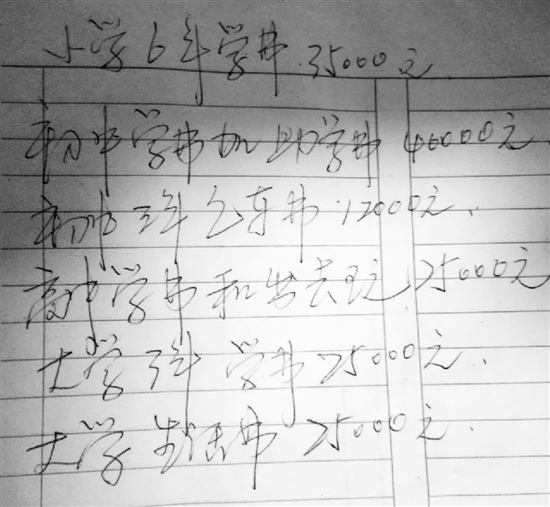 小学6年学费.35000元.
初中学费加助学费46000元.
初中三年包车费.12000元.
高中学费和 25000元
大学3年 学费25000元.
大学生活费 25000元.